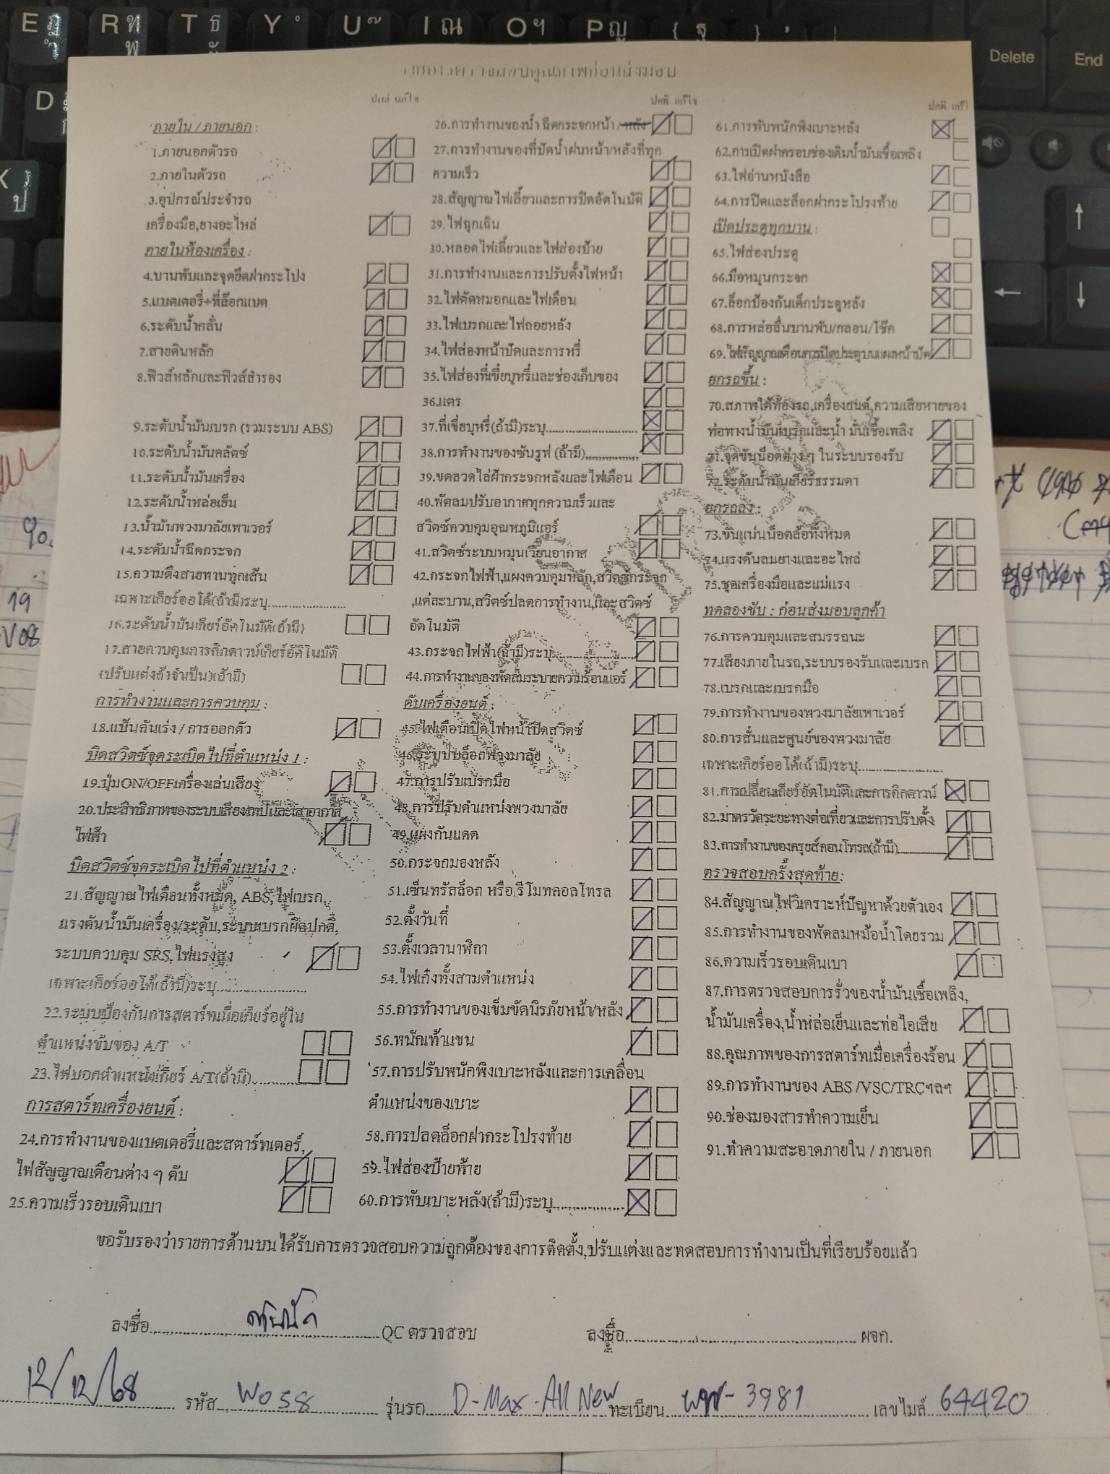 ปกติ แก้ไข
ภายใน / ภายนอก :
1.ภายนอกตัวรถ
2.ภายในตัวรถ
3.อุปกรณ์ประจำรถ
เครื่องมือ,ยางอะไหล่
ภายในห้องเครื่อง :
4.บานพับและจุดยึดฝากระโปรง
5.แบตเตอรี่+ที่ล็อกแบต
6.ระดับน้ำกลั่น
7.สายดินหลัก
8.ฟิวส์หลักและฟิวส์สำรอง
9.ระดับน้ำมันเบรก (รวมระบบ ABS)
10.ระดับน้ำมันคลัตช์
11.ระดับน้ำมันเครื่อง
12.ระดับน้ำหล่อเย็น
13.น้ำมันพวงมาลัยเพาเวอร์
14.ระดับน้ำฉีดกระจก
15.ความตึงสายพานทุกเส้น
เฉพาะเกียร์ออโต้(ถ้ามี)ระบุ....................
16.ระดับน้ำมันเกียร์อัตโนมัติ(ถ้ามี)
17.สายควบคุมการคิกดาวน์เกียร์อัติโนมัติ
(ปรับแต่งถ้าจำเป็น)(ถ้ามี)
การทำงานและการควบคุม :
18.แป้นคันเร่ง / การออกตัว
บิดสวิตช์จุดระเบิดไปที่ตำแหน่ง 1 :
19.ปุ่มON/OFFเครื่องเล่นเสียง
20.ประสิทธิภาพของระบบเสียงเทปและเสาอากาศ
ไฟฟ้า
บิดสวิตช์จุดระเบิดไปที่ตำแหน่ง 2 :
21.สัญญาณไฟเตือนทั้งหมด, ABS,ไฟเบรก,
แรงดันน้ำมันเครื่อง/ระดับ,ระบบเบรกผิดปกติ,
ระบบควบคุม SRS,ไฟแรงสูง
เฉพาะเกียร์ออโต้(ถ้ามี)ระบุ....................
22.ระบบป้องกันการสตาร์ทเมื่อเกียร์อยู่ใน
ตำแหน่งขับของ A/T
23.ไฟบอกตำแหน่งเกียร์ A/T(ถ้ามี)...........
การสตาร์ทเครื่องยนต์ :
24.การทำงานของแบตเตอรี่และสตาร์ทเตอร์,
ไฟสัญญาณเตือนต่าง ๆ ดับ
25.ความเร็วรอบเดินเบา
ปกติ แก้ไข
26.การทำงานของน้ำ ฉีดกระจกหน้า / หลัง
27.การทำงานของที่ปัดน้ำฝนหน้า/หลังที่ทุก
ความเร็ว
28.สัญญาณไฟเลี้ยวและการปิดอัตโนมัติ
29.ไฟฉุกเฉิน
30.หลอดไฟเลี้ยวและไฟส่องป้าย
31.การทำงานและการปรับตั้งไฟหน้า
32.ไฟตัดหมอกและไฟเตือน
33.ไฟเบรกและไฟถอยหลัง
34.ไฟส่องหน้าปัดและการหรี่
35.ไฟส่องที่เขี่ยบุหรี่และช่องเก็บของ
36.แตร
37.ที่เขี่ยบุหรี่(ถ้ามี)ระบุ........................
38.การทำงานของซันรูฟ (ถ้ามี)...............
39.ขดลวดไล่ฝ้ากระจกหลังและไฟเตือน
40.พัดลมปรับอากาศทุกความเร็วและ
สวิตช์ควบคุมอุณหภูมิแอร์
41.สวิตช์ระบบหมุนเวียนอากาศ
42.กระจกไฟฟ้า,แผงควบคุมหลัก,สวิตช์กระจก
,แต่ละบาน,สวิตช์ปลดการทำงาน,และสวิตช์
อัตโนมัติ
43.กระจกไฟฟ้า(ถ้ามี)ระบุ....................
44.การทำงานของพัดลมระบายความร้อนแอร์
ดับเครื่องยนต์ :
45.ไฟเตือนเปิดไฟหน้าปิดสวิตซ์
46.ระบบปลล็อกพวงมาลัย
47.การปรับเบรกมือ
48.การปรับตำแหน่งพวงมาลัย
49.แผงกันแดด
50.กระจกมองหลัง
51.เซ็นทรัลล็อก หรือรีโมทคอลโทรล
52.ตั้งวันที่
53.ตั้งเวลานาฬิกา
54.ไฟเก๋งทั้งสามตำแหน่ง
55.การทำงานของเข็มขัดนิรภัยหน้า/หลัง
56.พนักเท้าแขน
57.การปรับพนักพิงเบาะหลังและการเคลื่อน
ตำแหน่งของเบาะ
58.การปลดล็อกฝากระโปรงท้าย
59.ไฟส่องป้ายท้าย
60.การพับเบาะหลัง(ถ้ามี)ระบุ.................
ปกติ แก้ไข
61.การพับพนักพิงเบาะหลัง
62.การเปิดฝาครอบช่องเติมน้ำมันเชื้อเพลิง
63.ไฟอ่านหนังสือ
64.การปิดและล็อกฝากระโปรงท้าย
เปิดประตูทุกบาน :
65.ไฟส่องประตู
66.มือหมุนกระจก
67.ล็อกป้องกันเด็กประตูหลัง
68.การหล่อลื่นบานพับ/กลอน/โช๊ค
69.ไฟสัญญาณเตือนการปิดประตูบนแผงหน้าปัด
ยกรถขึ้น :
70.สภาพใต้ท้องรถ,เครื่องยนต์,ความเสียหายของ
ท่อทางน้ำมันเบรกและน้ำ มันเชื้อเพลิง
71.จุดขันน็อตต่างๆ ในระบบรองรับ
72.ระดับน้ำมันเกียร์ธรรมดา
ยกรถลง :
73.ขันแน่นน็อตล้อทั้งหมด
74.แรงดันลมยางและอะไหล่
75.ชุดเครื่องมือและแม่แรง
ทดลองขับ : ก่อนส่งมอบลูกค้า
76.การควบคุมและสมรรถนะ
77.เสียงภายในรถ,ระบบรองรับและเบรก
78.เบรกและเบรกมือ
79.การทำงานของพวงมาลัยเพาเวอร์
80.การสั่นและศูนย์ของพวงมาลัย
เฉพาะเกียร์ออโต้(ถ้ามี)ระบุ....................
81.การเปลี่ยนเกียร์อัตโนมัติและการคิกดาวน์
82.มาตรวัดระยะทางต่อเที่ยวและการปรับตั้ง
83.การทำงานของครุยส์คอนโทรล(ถ้ามี)............
ตรวจสอบครั้งสุดท้าย:
84.สัญญาณไฟวิเคราะห์ปัญหาด้วยตัวเอง
85.การทำงานของพัดลมหม้อน้ำโดยรวม
86.ความเร็วรอบเดินเบา
87.การตรวจสอบการรั่วของน้ำมันเชื้อเพลิง,
น้ำมันเครื่อง,น้ำหล่อเย็นและท่อไอเสีย
88.คุณภาพของการสตาร์ทเมื่อเครื่องร้อน
89.การทำงานของ ABS /VSC/TRCฯลฯ
90.ช่องมองสารทำความเย็น
91.ทำความสะอาดภายใน / ภายนอก
ขอรับรองว่ารายการด้านบนได้รับการตรวจสอบความถูกต้องของการติดตั้ง,ปรับแต่งและทดสอบการทำงานเป็นที่เรียบร้อยแล้ว
ลงชื่อ........................QC ตรวจสอบ ลงชื่อ........................ผจก.
12/12/68 รหัส W058 รุ่นรถ D-Max-All New ทะเบียน 3981 เลขไมล์ 64420